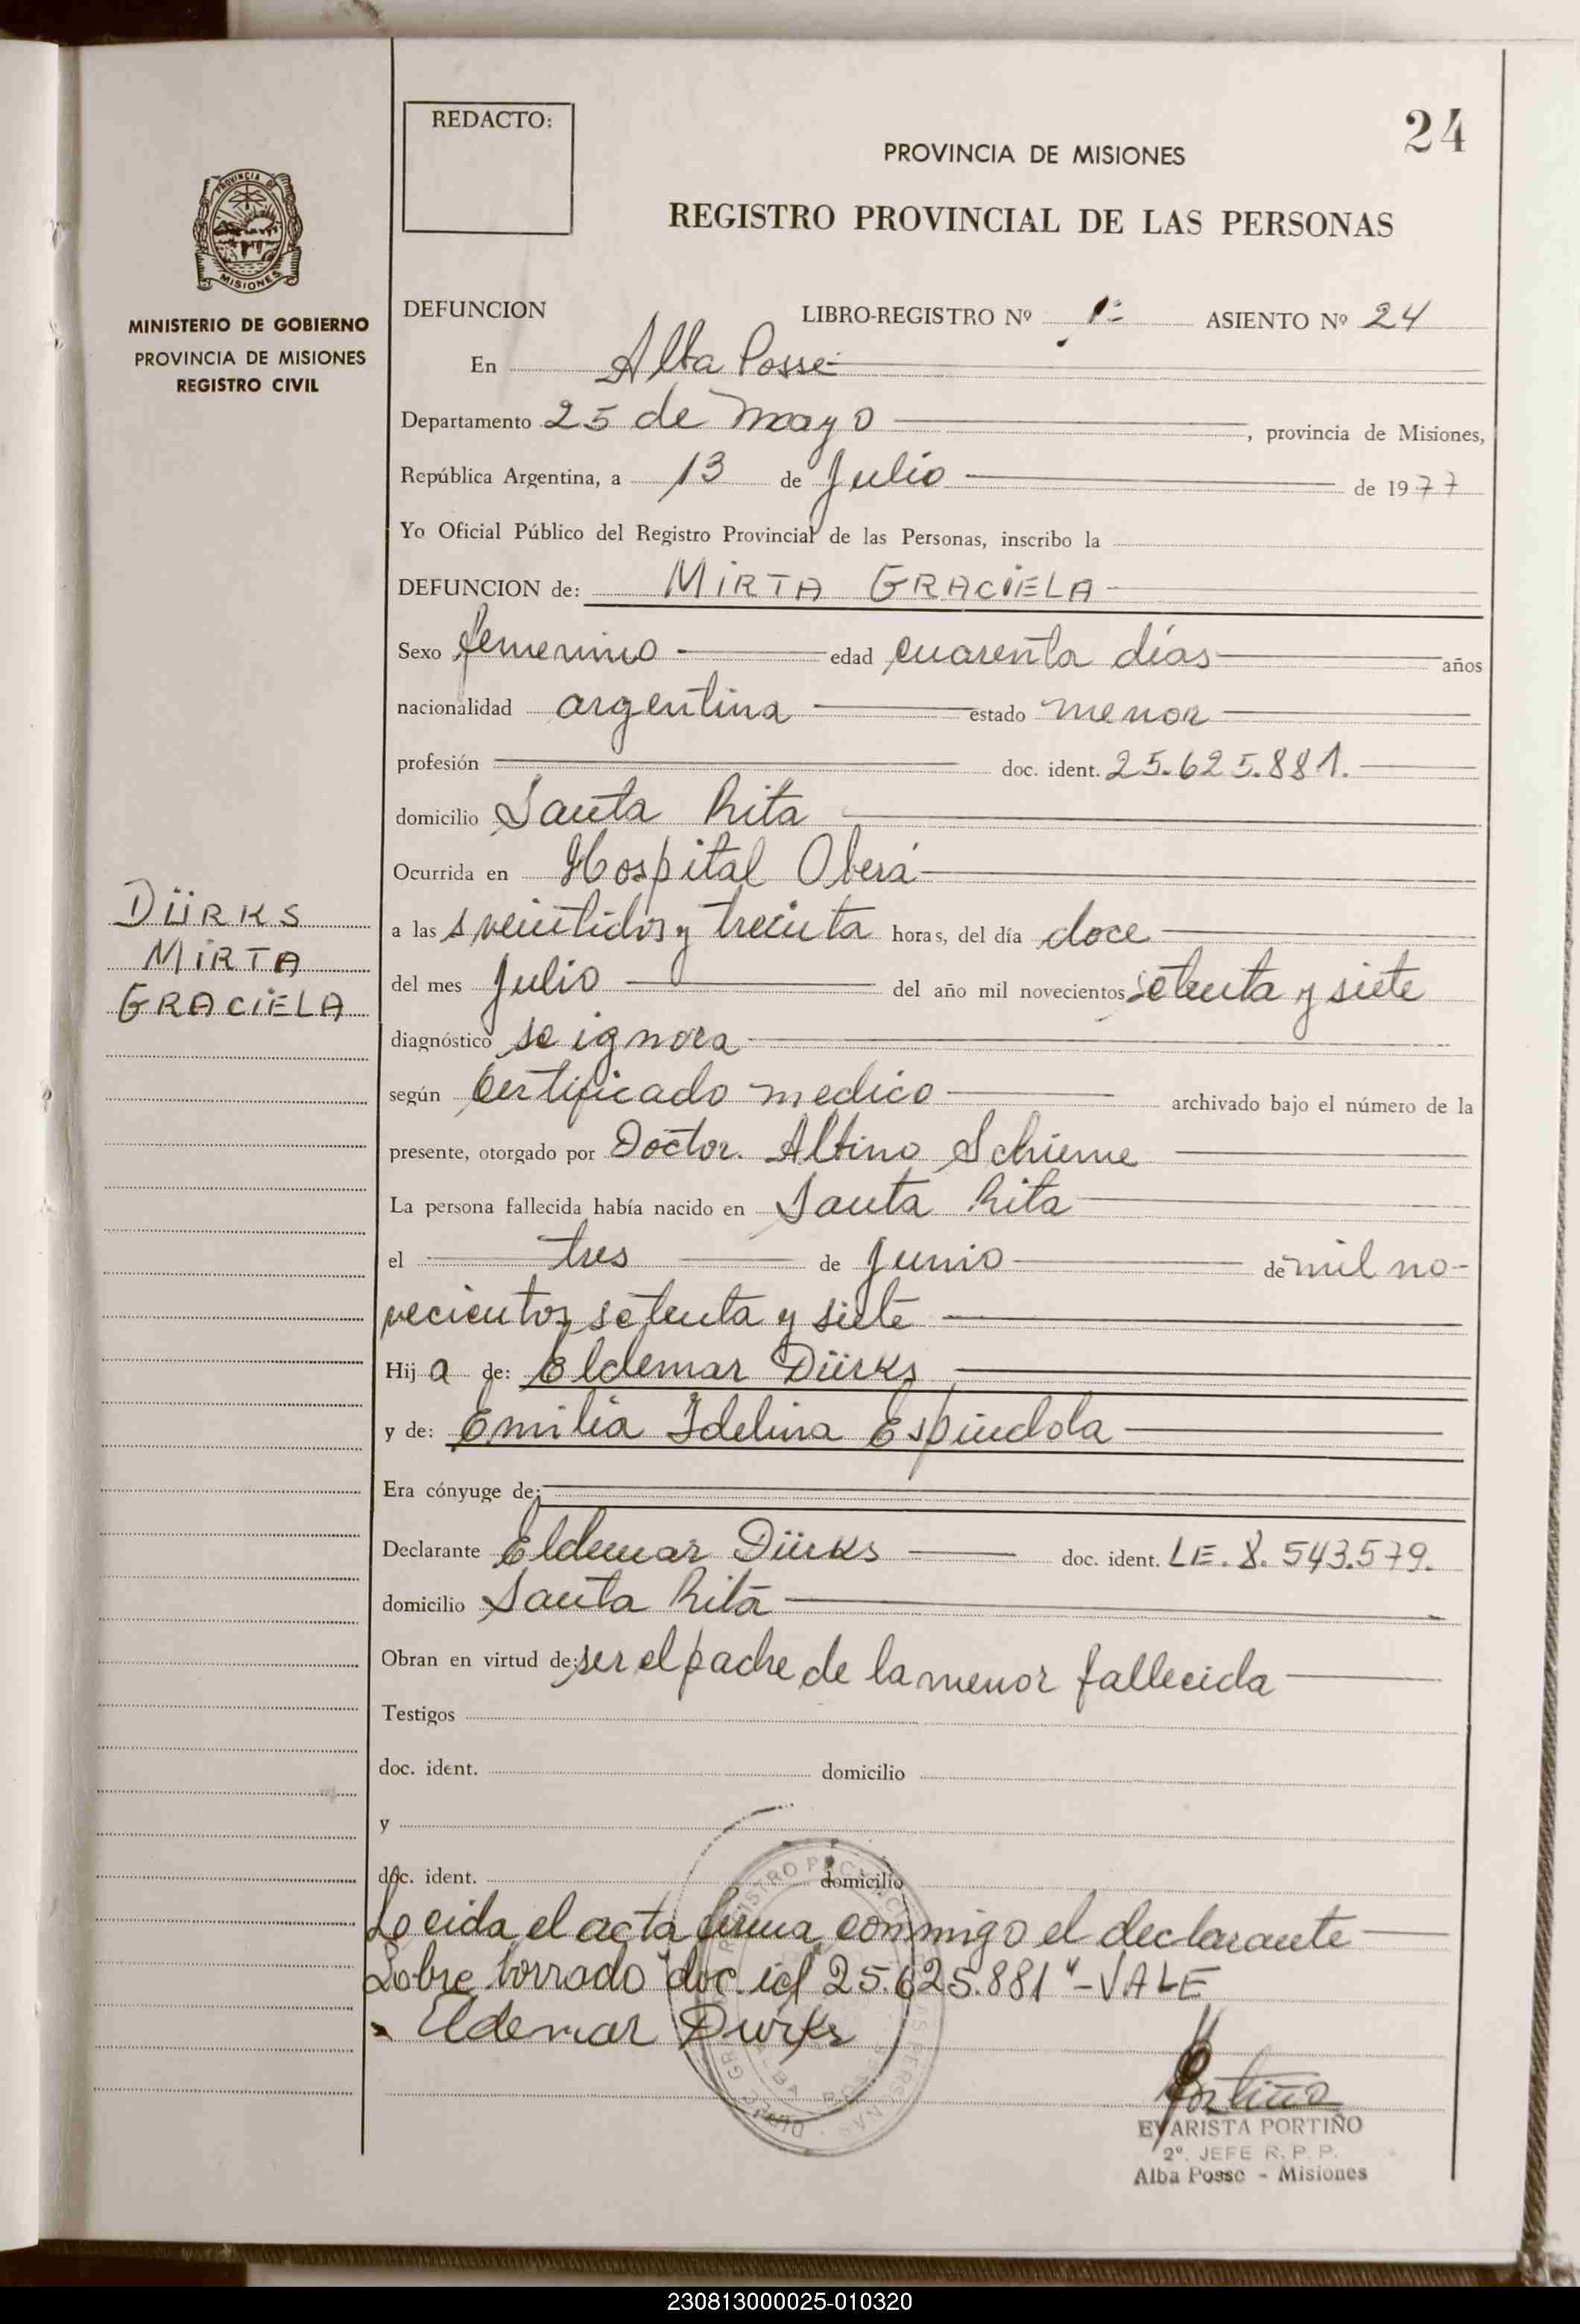 24
REDACTO:
PROVINCIA DE MISIONES
REGISTRO PROVINCIAL DE LAS PERSONAS
PROVINCIA DE
MISIONES
MINISTERIO DE GOBIERNO
PROVINCIA DE MISIONES
REGISTRO CIVIL
DEFUNCION LIBRO-REGISTRO Nº 1º ASIENTO Nº 24
En Alba Posse
Departamento 25 de mayo, provincia de Misiones,
República Argentina, a 13 de Julio de 1977
Yo Oficial Público del Registro Provincial de las Personas, inscribo la
DEFUNCION de: MIRTA GRACIELA
Sexo femenino edad cuarenta días años
nacionalidad argentina estado menor
profesión doc. ident. 25.625.881.
domicilio Santa Rita
Ocurrida en Hospital Oberá
DÜRKS
MIRTA
GRACIELA
a las veintidos y treinta horas, del día doce
del mes Julio del año mil novecientos setenta y siete
diagnóstico se ignora
según Certificado medico archivado bajo el número de la
presente, otorgado por Doctor. Albino Schieme
La persona fallecida había nacido en Santa Rita
el tres de Junio de mil no-
vecientos setenta y siete
Hij a de: Eldemar Dürks
y de: Emilia Idelina Espindola
Era cónyuge de:
Declarante Eldemar Dürks doc. ident. LE. 8.543.579.
domicilio Santa Rita
Obran en virtud de: ser el padre de la menor fallecida
Testigos
doc. ident. domicilio
y
doc. ident. domicilio
Leeida el acta firma conmigo el declarante
Sobre borrado "doc. id 25.625.881" - VALE
Eldemar Durks
Portiño
EVARISTA PORTIÑO
2º. JEFE R. P. P.
Alba Posse - Misiones
230813000025-010320